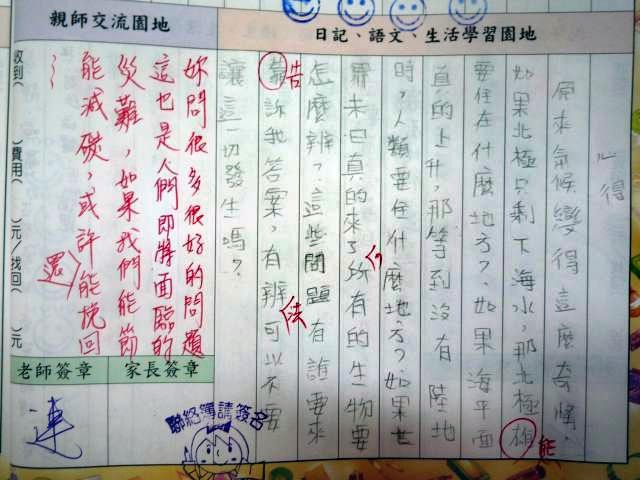 親師交流園地
日記、語文、生活學習園地
心得
原來氣候變得這麼奇怪，
如果北極只剩下海水，那北極熊
能
要住在什麼地方？如果海平面
真的上升，那等到沒有陸地
時，人類要住什麼地方？如果世
界末日真的來了所有的生物要
怎麼辨？這些問題有誰要來
告
訴我答案，有辨可以不要
法
讓這一切發生嗎？
妳問很多很好的問題
這也是人們即將面臨的
災難，如果我們能節
能減碳，或許能挽回
還
收到( )費用( )元/找回( )元
老師簽章
家長簽章
連
聯絡簿請簽名